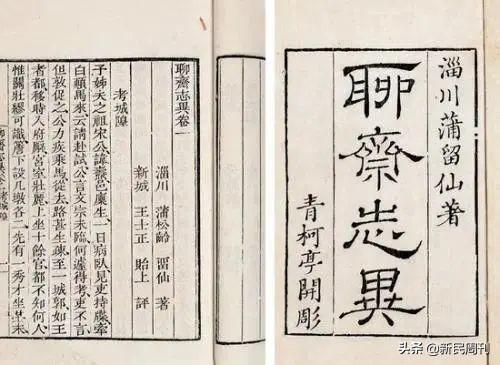 淄川蒲留仙著
聊齋志異
青柯亭開彫
聊齋志異卷一
淄川 蒲松齡 留仙 著
新城 王士正 貽上 評
考城隍
子姊夫之祖宋公諱燾邑廩生一日病臥見吏持牒牽
白顛馬來云請赴試公言文宗未臨何遽得考吏不言
但敦促之公力疾乘馬從去路甚生疎至一城郭如王
者都移時入府廨宮室壯麗上坐十餘官都不知何人
惟關壯繆可識簷下設几墩各二先有一秀才坐其末
头条 @新民周刊